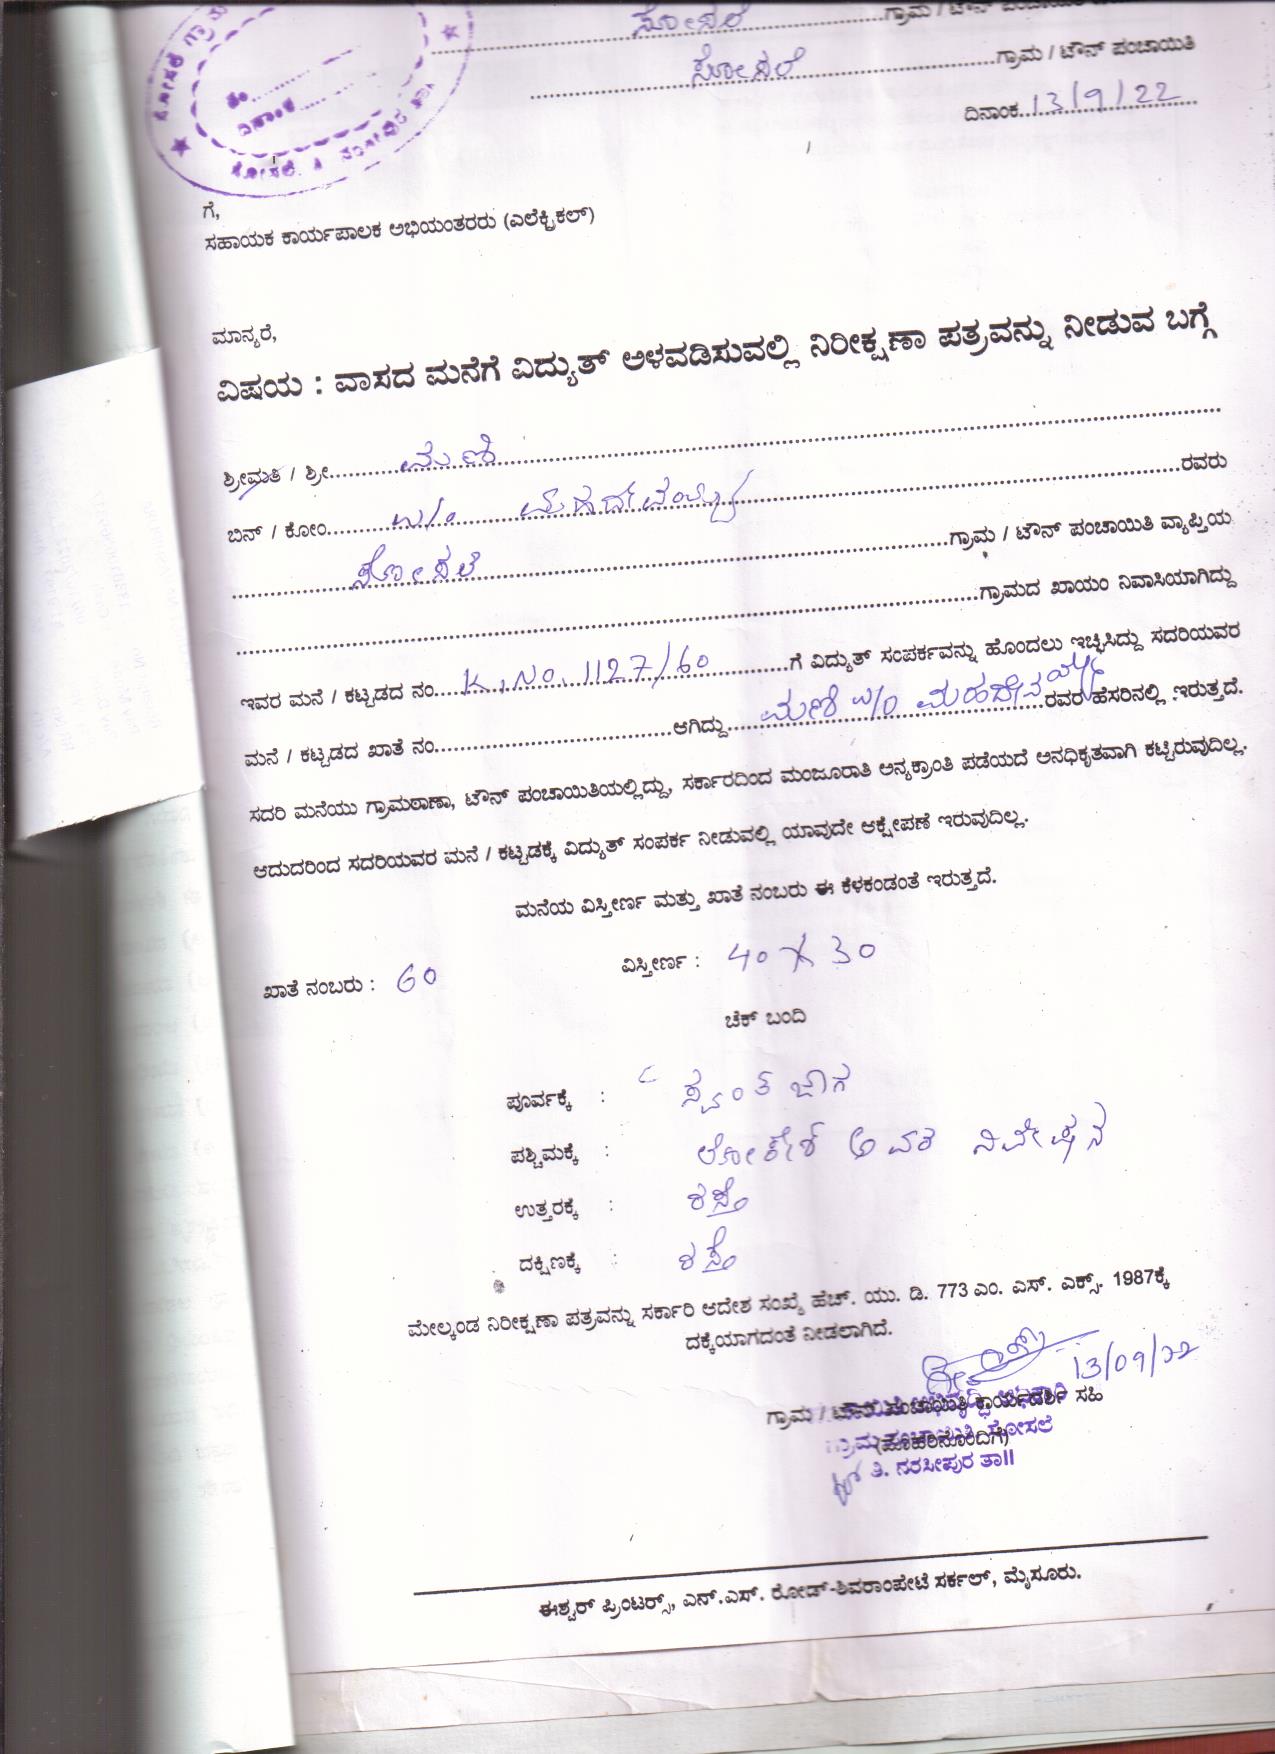 ಸೋಸಲೆ ಗ್ರಾಮ / ಟೌನ್ ಪಂಚಾಯಿತಿ
ಸೋಸಲೆ ಗ್ರಾಮ / ಟೌನ್ ಪಂಚಾಯಿತಿ
ದಿನಾಂಕ 13/9/22
ಸೋಸಲೆ
ನಂ
ದಿನಾಂಕ
ಗೆ,
ಸಹಾಯಕ ಕಾರ್ಯಪಾಲಕ ಅಭಿಯಂತರರು (ಎಲೆಕ್ಟ್ರಿಕಲ್)
ಮಾನ್ಯರೆ,
ವಿಷಯ : ವಾಸದ ಮನೆಗೆ ವಿದ್ಯುತ್ ಅಳವಡಿಸುವಲ್ಲಿ ನಿರೀಕ್ಷಣಾ ಪತ್ರವನ್ನು ನೀಡುವ ಬಗ್ಗೆ
ಶ್ರೀಮತಿ / ಶ್ರೀ ಮಣಿ
ಬಿನ್ / ಕೋಂ w/o ಮಹದೇವಯ್ಯ ರವರು
ಸೋಸಲೆ ಗ್ರಾಮ / ಟೌನ್ ಪಂಚಾಯಿತಿ ವ್ಯಾಪ್ತಿಯ
ಗ್ರಾಮದ ಖಾಯಂ ನಿವಾಸಿಯಾಗಿದ್ದು
ಇವರ ಮನೆ / ಕಟ್ಟಡದ ನಂ. K.NO. 1127/60 ಗೆ ವಿದ್ಯುತ್ ಸಂಪರ್ಕವನ್ನು ಹೊಂದಲು ಇಚ್ಛಿಸಿದ್ದು ಸದರಿಯವರ
ಮನೆ / ಕಟ್ಟಡದ ಖಾತೆ ನಂ. ಆಗಿದ್ದು ಮಣಿ w/o ಮಹದೇವಯ್ಯ ರವರ ಹೆಸರಿನಲ್ಲಿ ಇರುತ್ತದೆ.
ಸದರಿ ಮನೆಯು ಗ್ರಾಮಠಾಣಾ, ಟೌನ್ ಪಂಚಾಯಿತಿಯಲ್ಲಿದ್ದು, ಸರ್ಕಾರದಿಂದ ಮಂಜೂರಾತಿ ಅನ್ಯಕ್ರಾಂತಿ ಪಡೆಯದೆ ಅನಧಿಕೃತವಾಗಿ ಕಟ್ಟಿರುವುದಿಲ್ಲ.
ಆದುದರಿಂದ ಸದರಿಯವರ ಮನೆ / ಕಟ್ಟಡಕ್ಕೆ ವಿದ್ಯುತ್ ಸಂಪರ್ಕ ನೀಡುವಲ್ಲಿ ಯಾವುದೇ ಆಕ್ಷೇಪಣೆ ಇರುವುದಿಲ್ಲ.
ಮನೆಯ ವಿಸ್ತೀರ್ಣ ಮತ್ತು ಖಾತೆ ನಂಬರು ಈ ಕೆಳಕಂಡಂತೆ ಇರುತ್ತದೆ.
ಖಾತೆ ನಂಬರು : 60 ವಿಸ್ತೀರ್ಣ : 40 X 30
ಚೆಕ್ ಬಂದಿ
ಪೂರ್ವಕ್ಕೆ : ಸ್ವಂತ ಜಾಗ
ಪಶ್ಚಿಮಕ್ಕೆ : ಲೋಕೇಶ್ ಅವರ ನಿವೇಷನ
ಉತ್ತರಕ್ಕೆ : ರಸ್ತೆ
ದಕ್ಷಿಣಕ್ಕೆ : ರಸ್ತೆ
ಮೇಲ್ಕಂಡ ನಿರೀಕ್ಷಣಾ ಪತ್ರವನ್ನು ಸರ್ಕಾರಿ ಆದೇಶ ಸಂಖ್ಯೆ ಹೆಚ್. ಯು. ಡಿ. 773 ಎಂ. ಎಸ್. ಎಕ್ಸ್. 1987ಕ್ಕೆ
ದಕ್ಕೆಯಾಗದಂತೆ ನೀಡಲಾಗಿದೆ.
13/09/22
ಗ್ರಾಮ / ಟೌನ್ ಪಂಚಾಯಿತಿ ಕಾರ್ಯದರ್ಶಿ ಸಹಿ
(ಮೊಹರಿನೊಂದಿಗೆ)
ಸೋಸಲೆ
ತಿ. ನರಸೀಪುರ ತಾ||
ಈಶ್ವರ್ ಪ್ರಿಂಟರ್ಸ್, ಎನ್.ಎಸ್. ರೋಡ್-ಶಿವರಾಂಪೇಟೆ ಸರ್ಕಲ್, ಮೈಸೂರು.